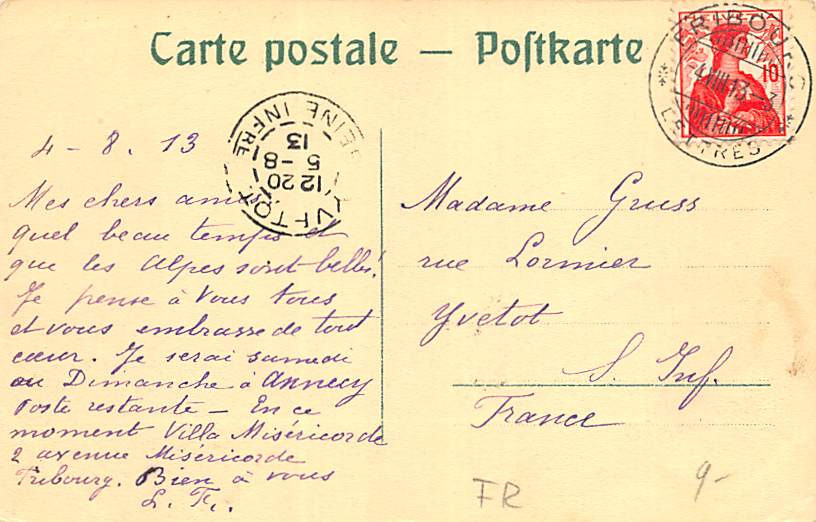 Carte postale — Postkarte
FRIBOURG
4.VIII.13.-3
LETTRES
10
YVETOT
12 20
5-8
13
SEINE INFRE
4-8.13
Mes chers amis
quel beau temps et
que les Alpes sont belles!
Je pense à vous tous
et vous embrasse de tout
cœur. Je serai samedi
ou Dimanche à Annecy
poste restante - En ce
moment Villa Miséricorde
2 avenue Miséricorde
Fribourg. Bien à vous
Madame Gruss
rue Lormier
Yvetot
S. Inf.
France
FR
9-